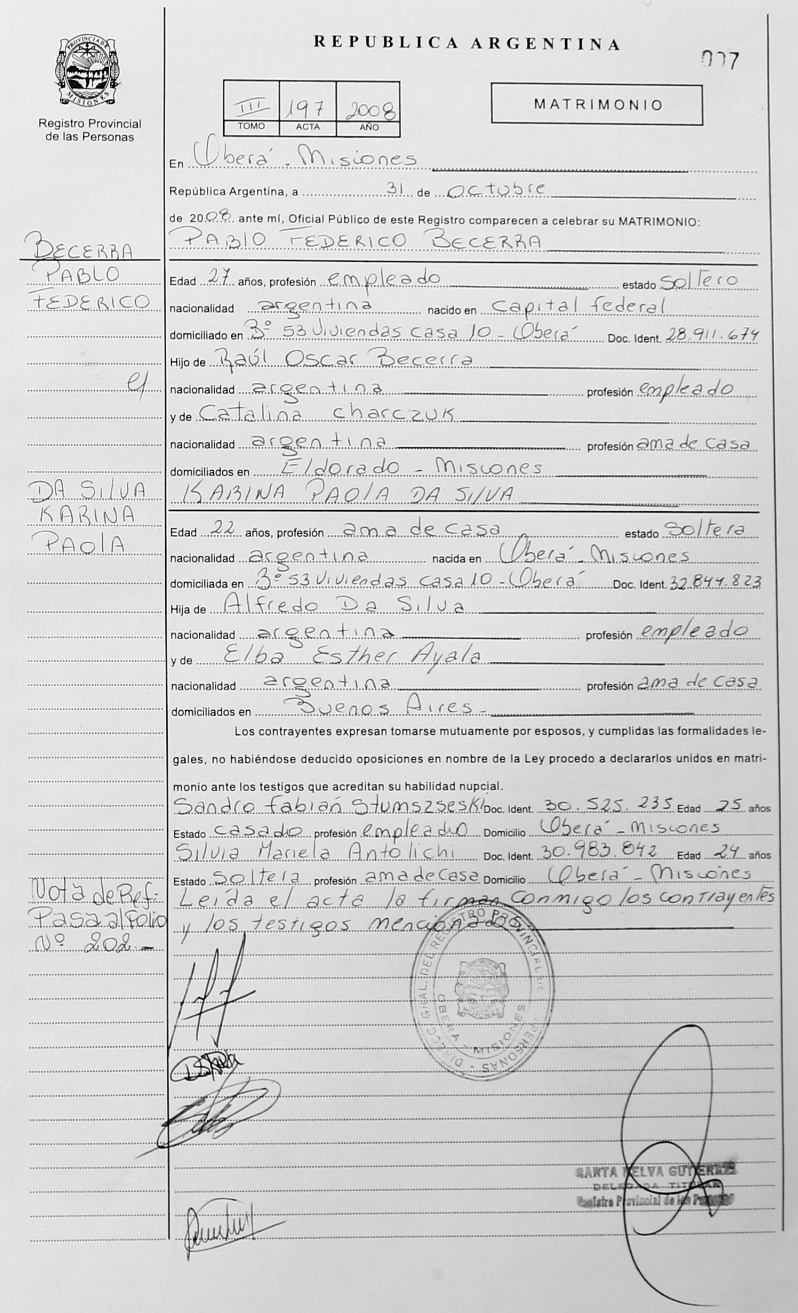 REPUBLICA ARGENTINA
007
PROVINCIA DE
MISIONES
Registro Provincial
de las Personas
III 197 2008
TOMO ACTA AÑO
MATRIMONIO
En Oberá - Misiones
República Argentina, a 31 de octubre
de 2008 ante mí, Oficial Público de este Registro comparecen a celebrar su MATRIMONIO:
PABLO FEDERICO BECERRA
BECERRA
PABLO
FEDERICO
Edad 27 años, profesión empleado estado soltero
nacionalidad argentina nacido en Capital federal
domiciliado en Bº 53 viviendas casa 10 - Oberá Doc. Ident. 28.911.674
Hijo de Raúl Oscar Becerra
nacionalidad argentina profesión empleado
y de Catalina Charczuk
nacionalidad argentina profesión ama de casa
domiciliados en Eldorado - Misiones
KARINA PAOLA DA SILVA
DA SILVA
KARINA
PAOLA
Edad 22 años, profesión ama de casa estado soltera
nacionalidad argentina nacida en Oberá - Misiones
domiciliada en Bº 53 viviendas casa 10 - Oberá Doc. Ident. 32.844.823
Hija de Alfredo Da Silva
nacionalidad argentina profesión empleado
y de Elba Esther Ayala
nacionalidad argentina profesión ama de casa
domiciliados en Buenos Aires -
Los contrayentes expresan tomarse mutuamente por esposos, y cumplidas las formalidades le-
gales, no habiéndose deducido oposiciones en nombre de la Ley procedo a declararlos unidos en matri-
monio ante los testigos que acreditan su habilidad nupcial.
Sandro Fabián Doc. Ident. 30.525.235 Edad 25 años
Estado casado profesión empleado Domicilio Oberá - Misiones
Silvia Mariela Antolichi Doc. Ident. 30.983.042 Edad 24 años
Estado soltera profesión ama de casa Domicilio Oberá - Misiones
Leida el acta la firman conmigo los contrayentes
y los testigos mencionados
Nota de Ref:
Pasa al Folio
Nº 202 -
DIRECC. GRAL. DEL REGISTRO PROVINCIAL DE PERSONAS
OBERA - MISIONES
SANTA NELVA GUTIERREZ
DELEGADA TITULAR
Registro Provincial de las Personas